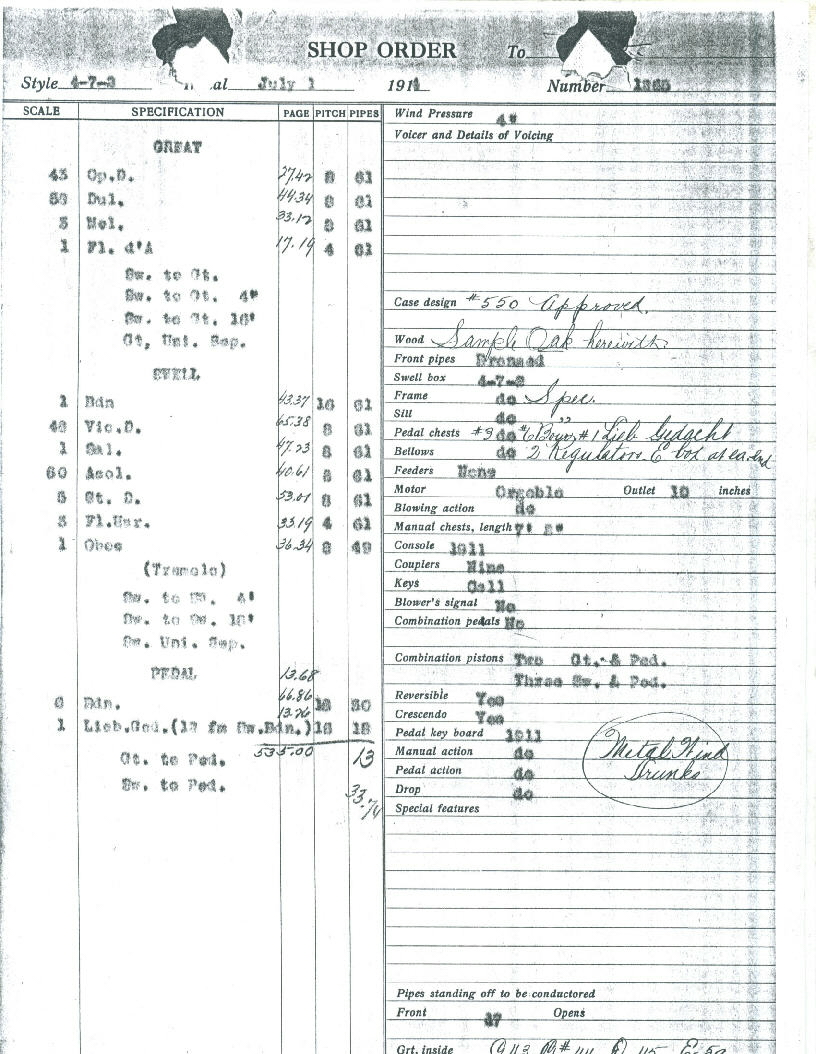 SHOP ORDER To
Style 4-7-2 July 1 191 Number
SCALE SPECIFICATION PAGE PITCH PIPES
GREAT
43 Op.D. 27.42 8 61
Dul. 44.34 8 61
3 Mel. 33.12 8 61
1 Fl. d'A 17.19 4 61
Sw. to Gt.
Sw. to Gt. 4'
Sw. to Gt. 16'
Gt, Uni. Sep.
SWELL
1 Bdn 43.37 16 61
Vio.D. 65.38 8 61
1 Sal. 47.23 8 61
60 Aeol. 40.61 8 61
St. D. 53.01 8 61
3 Fl.Har. 33.19 4 61
1 Oboe 36.34 8 49
(Tremolo)
Sw. to Sw. 4'
Sw. to Sw. 16'
Sw. Uni. Sep.
PEDAL 13.68
Bdn. 66.86 16 30
13.76
1 Lieb.Ged.(12 fm Sw.Bdn.) 16 18
Gt. to Ped. 535.00 13
Sw. to Ped. 33.74
Wind Pressure 4"
Voicer and Details of Voicing
Case design #550 Approved.
Wood Sample Oak herewith.
Front pipes Bronzed
Swell box 4-7-2
Frame do Spec.
Sill do "
Pedal chests #9 do #6 Bour, #1 Lieb Gedacht
Bellows do 2 Regulators E box at ea. end
Feeders None
Motor Orgoblo Outlet 10 inches
Blowing action do
Manual chests, length 7'
Console 1911
Couplers Nine
Keys Cell
Blower's signal No
Combination pedals No
Combination pistons Two Gt. & Ped.
Three Sw. & Ped.
Reversible Yes
Crescendo Yes
Pedal key board 1911
Manual action do
Pedal action do
Drop do
Special features
Metal Wind
Trunks
Pipes standing off to be conductored
Front 37 Opens
Grt. inside